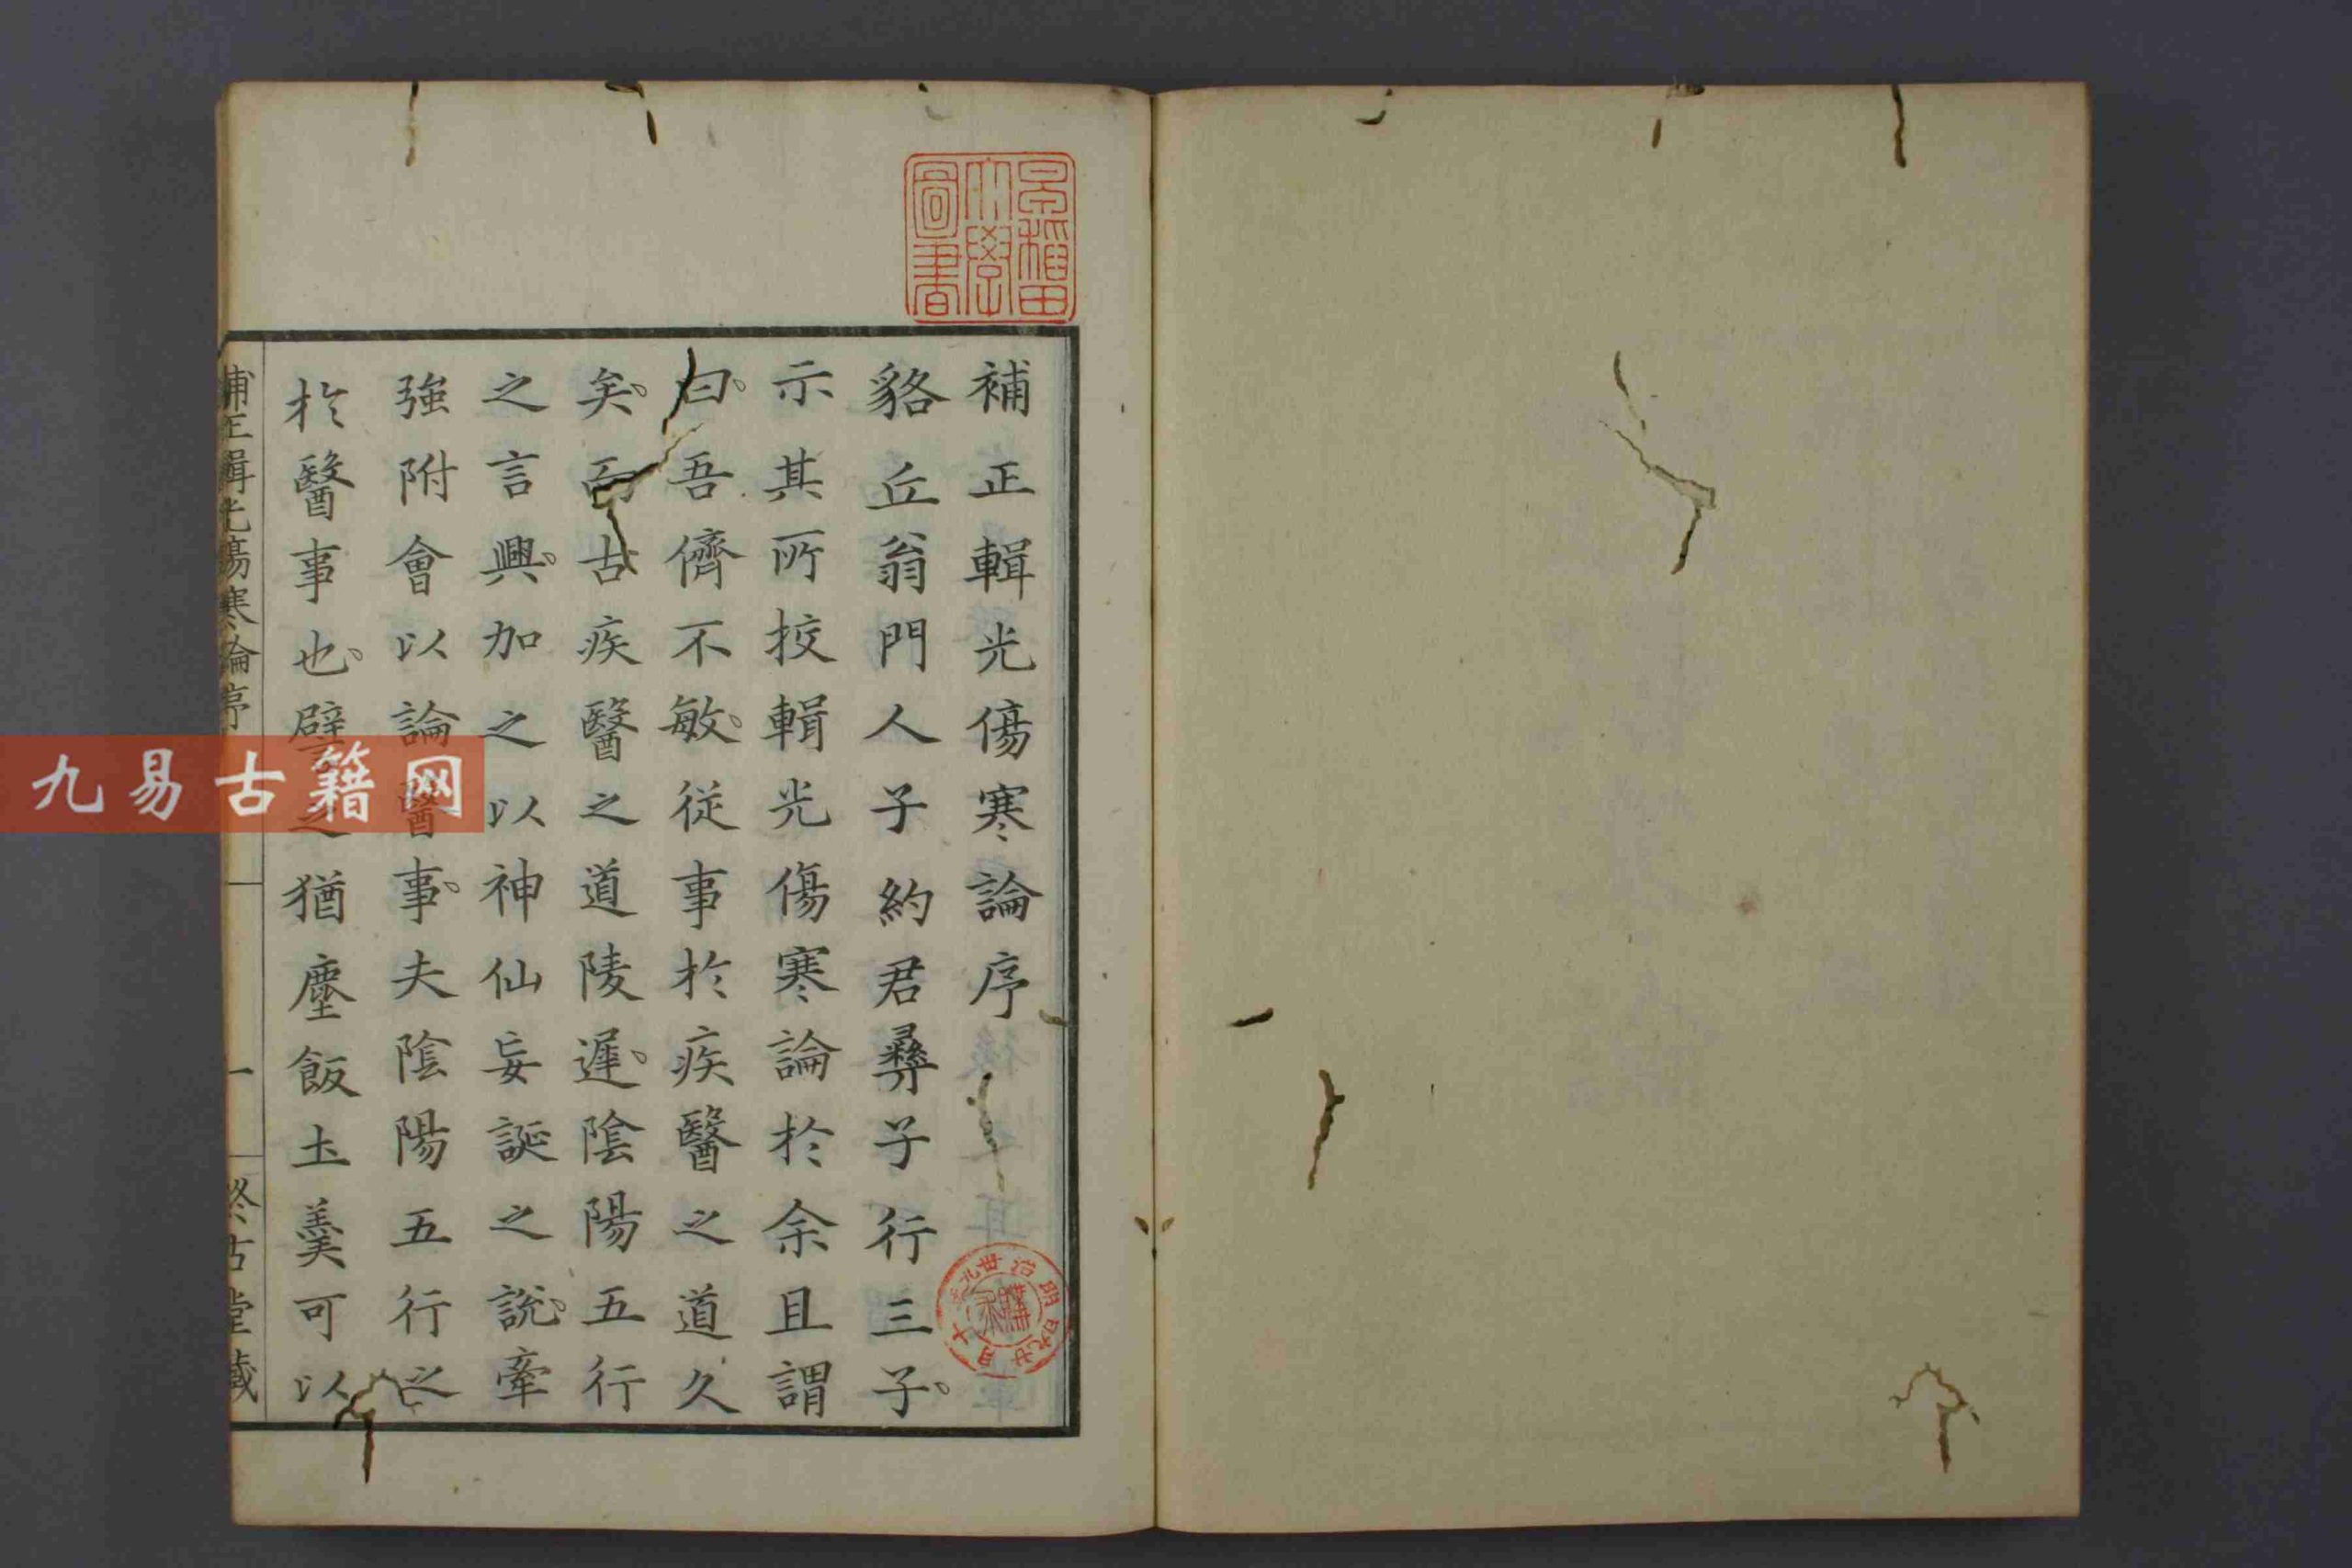 補正輯光傷寒論序
貉丘翁門人子約君彝子行三子
示其所挍輯光傷寒論於余且謂
曰吾儕不敏從事於疾醫之道久
矣而古疾醫之道陵遲陰陽五行
之言興加之以神仙妄誕之說牽
強附會以論醫事夫陰陽五行之
於醫事也譬之猶塵飯土羹可以
補正輯光傷寒論序
一
終古堂藏
早稲田
大學
圖書
明治廿九年十月廿九日
九易古籍网